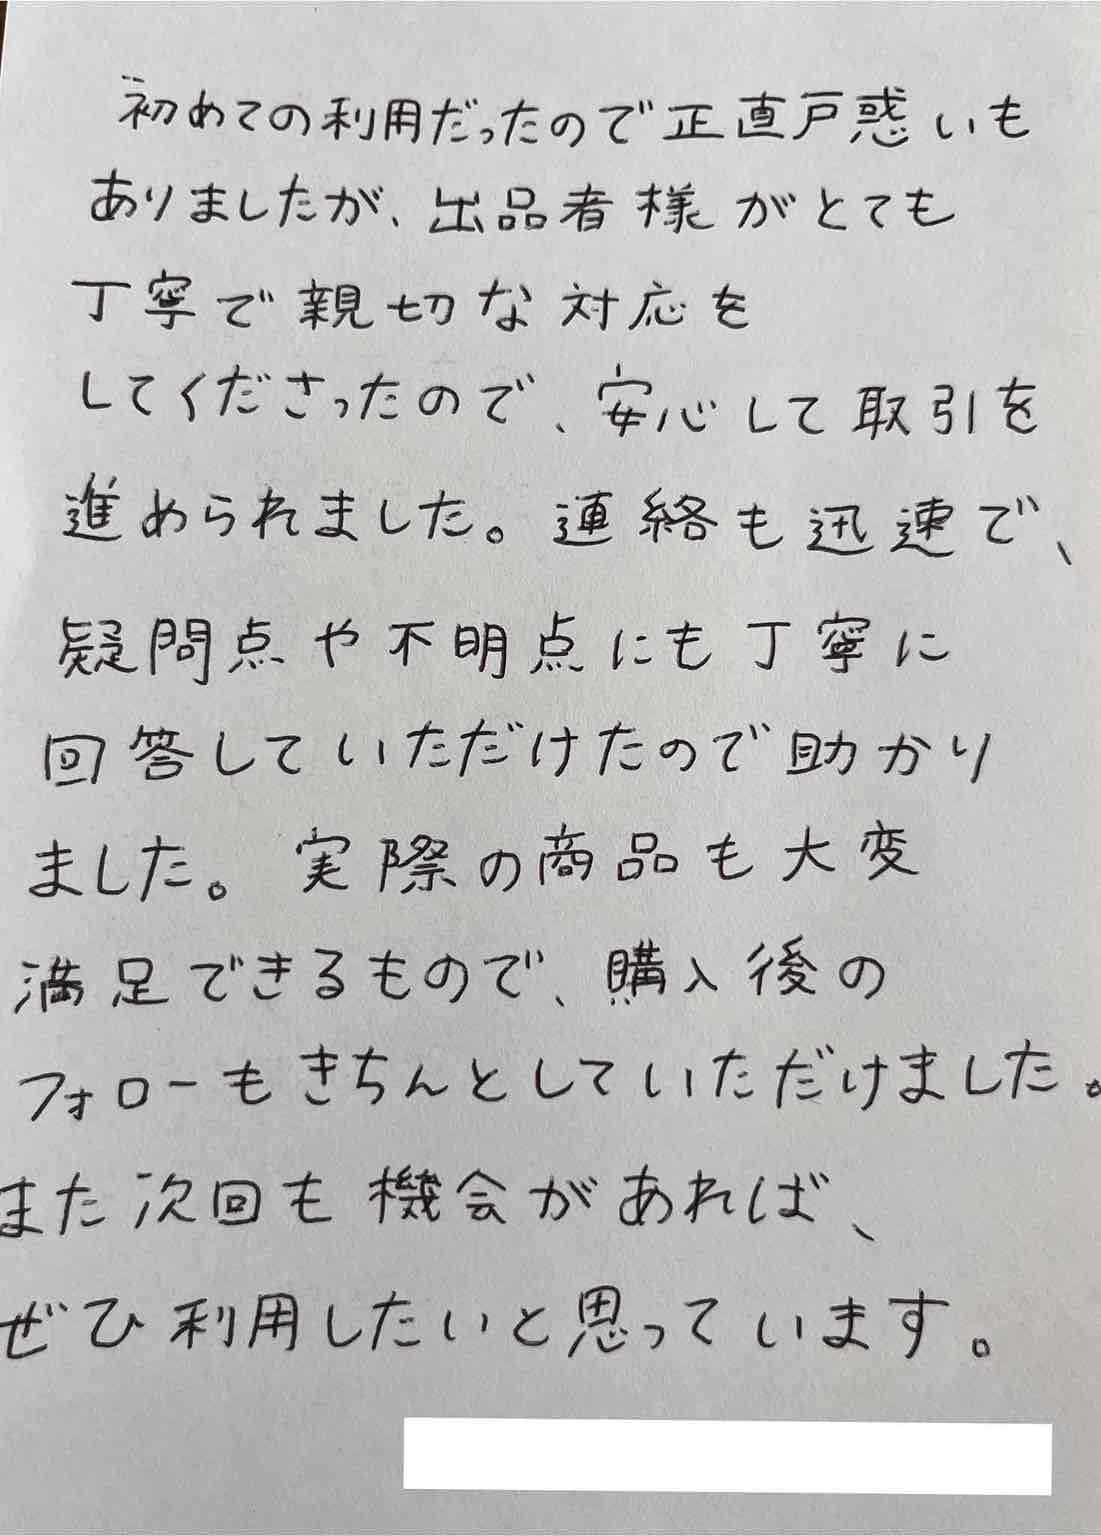 初めての利用だったので正直戸惑いも
ありましたが、出品者様がとても
丁寧で親切な対応を
してくださったので、安心して取引を
進められました。連絡も迅速で、
疑問点や不明点にも丁寧に
回答していただけたので助かり
ました。実際の商品も大変
満足できるもので、購入後の
フォローもきちんとしていただけました。
また次回も機会があれば、
ぜひ利用したいと思っています。